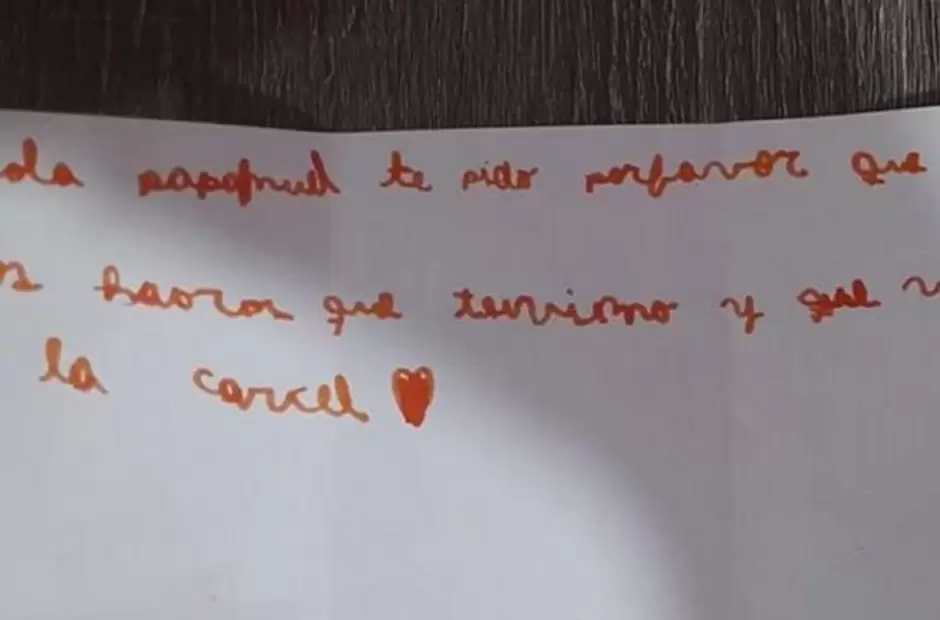 ola papapnuel te pido porfavor que
hagas que terrismo y que
la carcel